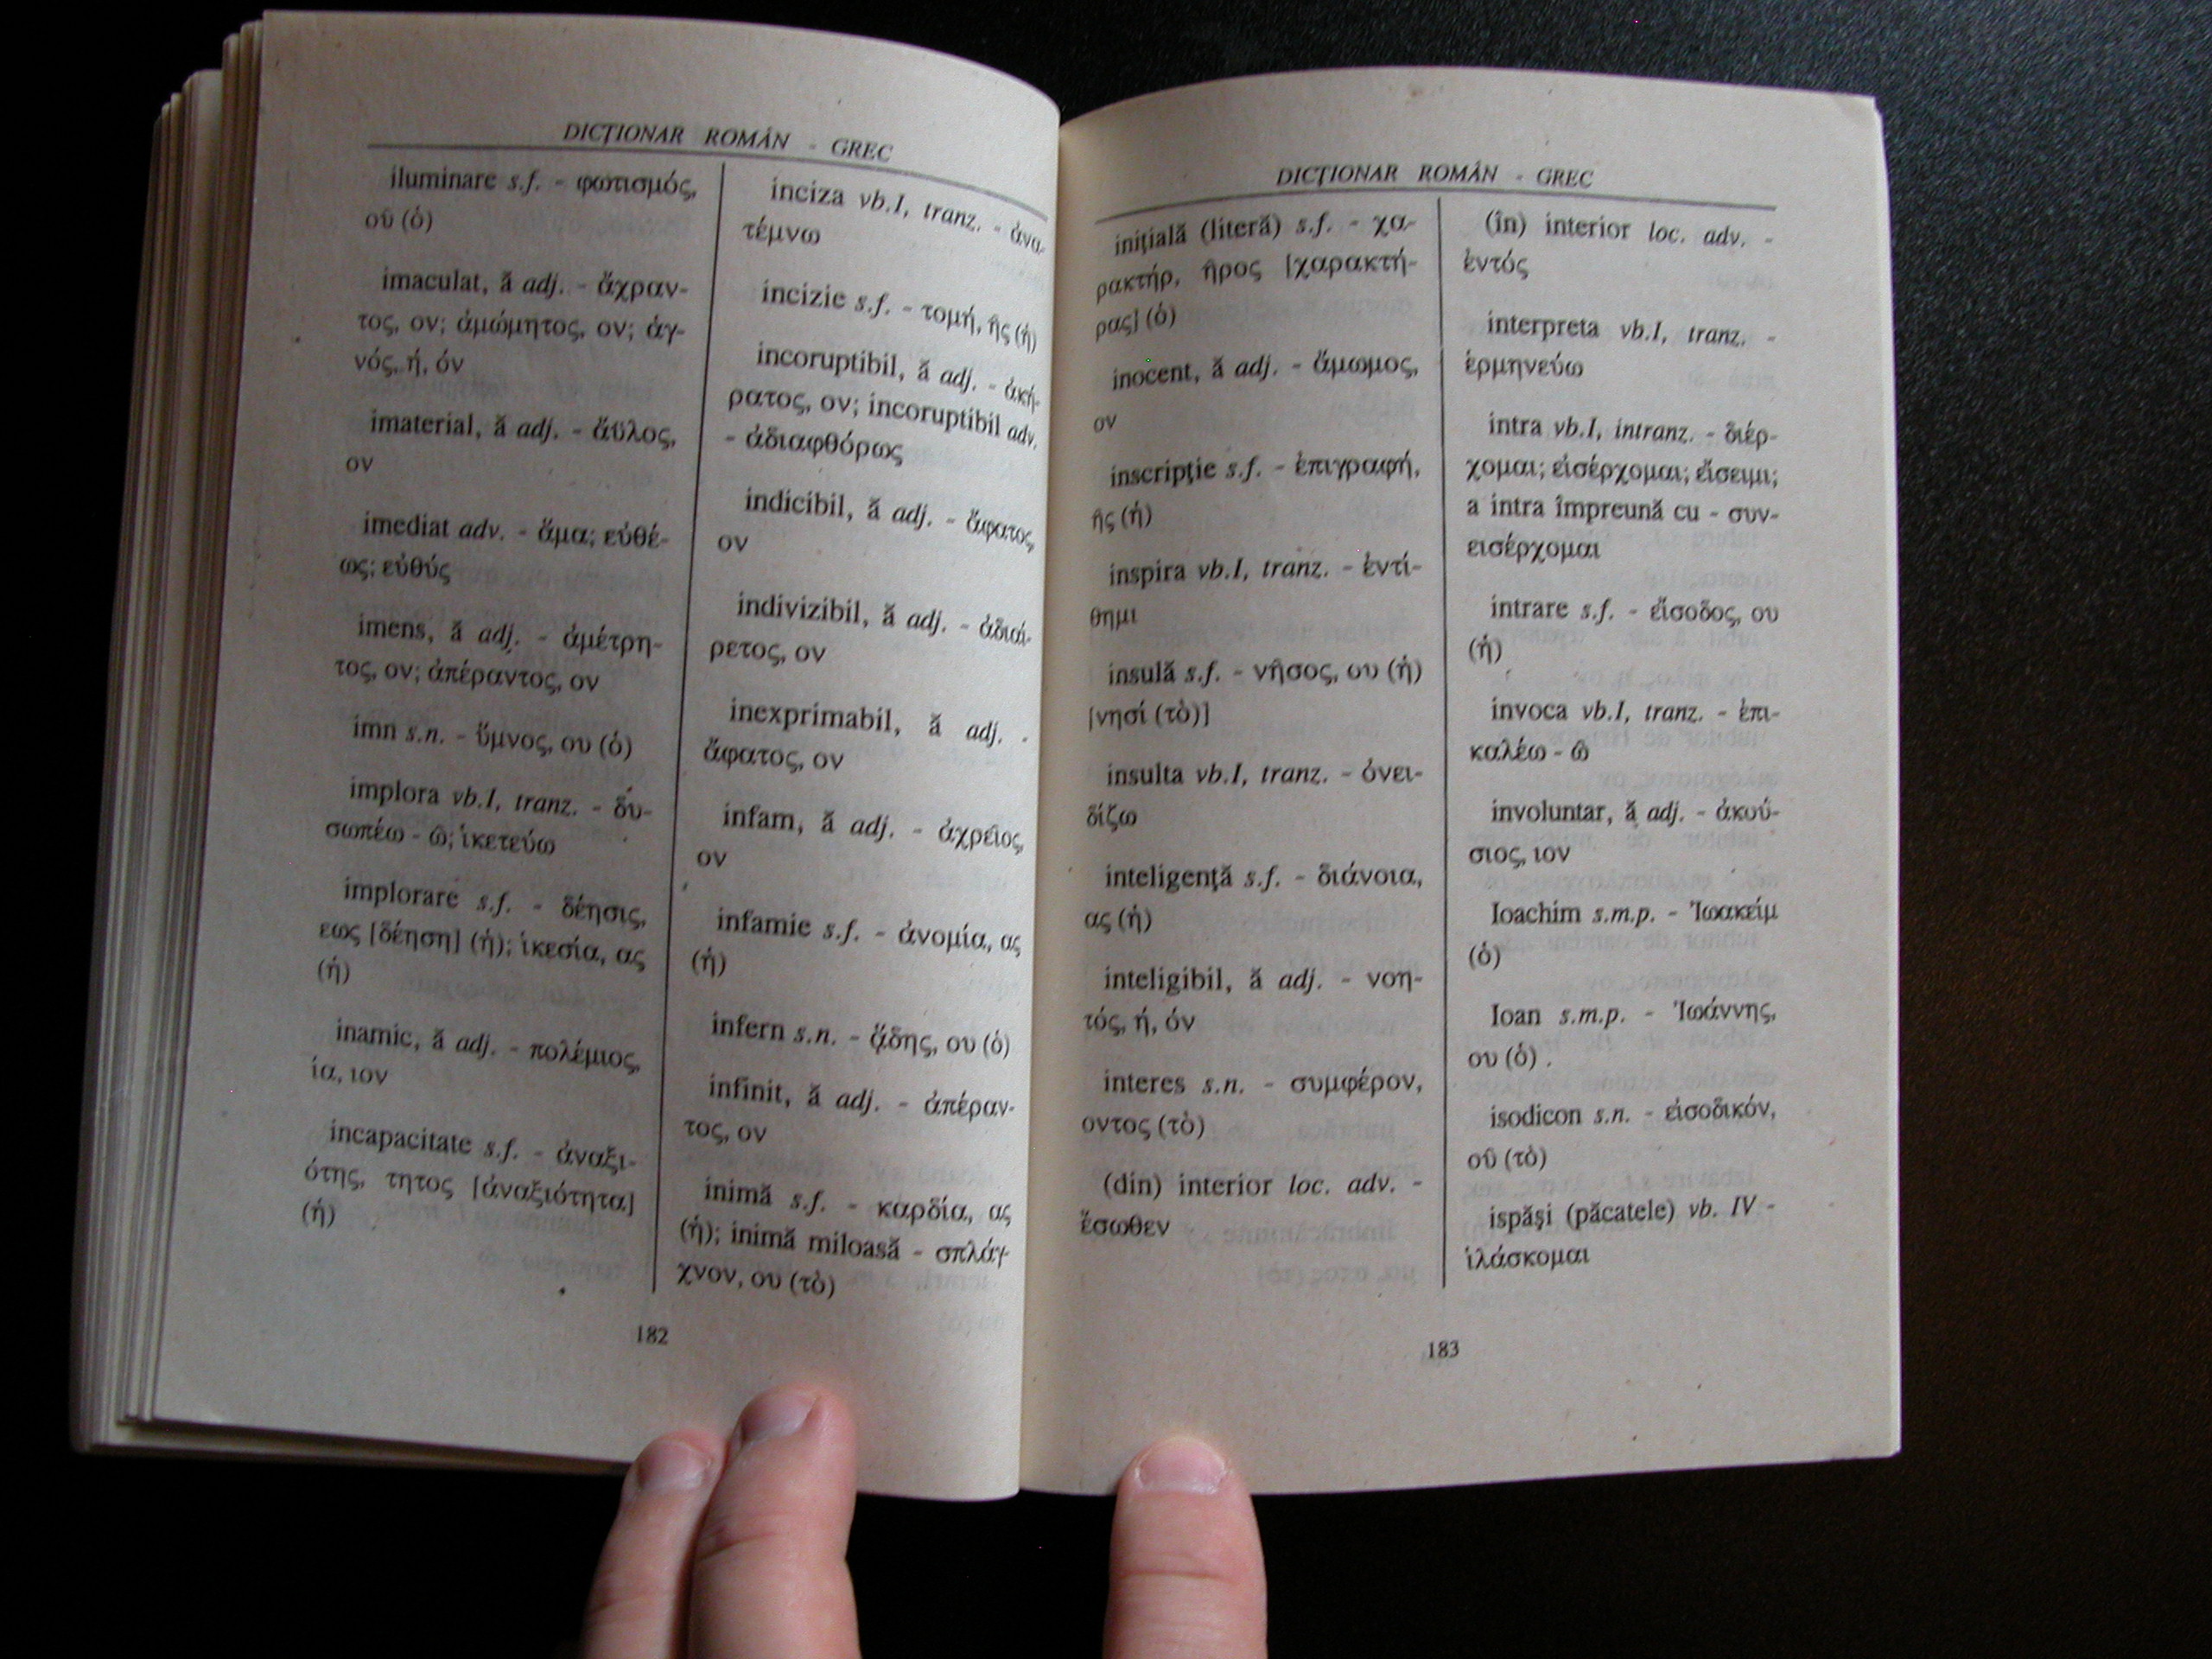 DICŢIONAR ROMÂN - GREC
iluminare s.f. - φωτισμός,
οῦ (ὁ)
imaculat, ă adj. - ἄχραν-
τος, ον; ἀμώμητος, ον; ἁγ-
νός, ή, όν
imaterial, ă adj. - ἄϋλος,
ον
imediat adv. - ἅμα; εὐθέ-
ως; εὐθύς
imens, ă adj. - ἀμέτρη-
τος, ον; ἀπέραντος, ον
imn s.n. - ὕμνος, ου (ὁ)
implora vb.I, tranz. - δυ-
σωπέω - ῶ; ἱκετεύω
implorare s.f. - δέησις,
εως [δέηση] (ἡ); ἱκεσία, ας
(ἡ)
inamic, ă adj. - πολέμιος,
ία, ιον
incapacitate s.f. - ἀναξι-
ότης, τητος [ἀναξιότητα]
(ἡ)
inciza vb.I, tranz. - ἀνα-
τέμνω
incizie s.f. - τομή, ῆς (ἡ)
incoruptibil, ă adj. - ἀκή-
ρατος, ον; incoruptibil adv.
- ἀδιαφθόρως
indicibil, ă adj. - ἄφατος,
ον
indivizibil, ă adj. - ἀδιαί-
ρετος, ον
inexprimabil, ă adj. -
ἄφατος, ον
infam, ă adj. - ἀχρεῖος,
ον
infamie s.f. - ἀνομία, ας
(ἡ)
infern s.n. - ᾅδης, ου (ὁ)
infinit, ă adj. - ἀπέραν-
τος, ον
inimă s.f. - καρδία, ας
(ἡ); inimă miloasă - σπλάγ-
χνον, ου (τὸ)
182
DICŢIONAR ROMÂN - GREC
iniţială (literă) s.f. - χα-
ρακτήρ, ῆρος [χαρακτή-
ρας] (ὁ)
inocent, ă adj. - ἄμωμος,
ον
inscripţie s.f. - ἐπιγραφή,
ῆς (ἡ)
inspira vb.I, tranz. - ἐντί-
θημι
insulă s.f. - νῆσος, ου (ἡ)
[νησί (τὸ)]
insulta vb.I, tranz. - ὀνει-
δίζω
inteligenţă s.f. - διάνοια,
ας (ἡ)
inteligibil, ă adj. - νοη-
τός, ή, όν
interes s.n. - συμφέρον,
οντος (τὸ)
(din) interior loc. adv. -
ἔσωθεν
(în) interior loc. adv. -
ἐντός
interpreta vb.I, tranz. -
ἑρμηνεύω
intra vb.I, intranz. - διέρ-
χομαι; εἰσέρχομαι; εἴσειμι;
a intra împreună cu - συν-
εισέρχομαι
intrare s.f. - εἴσοδος, ου
(ἡ)
invoca vb.I, tranz. - ἐπι-
καλέω - ῶ
involuntar, ă adj. - ἀκού-
σιος, ιον
Ioachim s.m.p. - Ἰωακείμ
(ὁ)
Ioan s.m.p. - Ἰωάννης,
ου (ὁ) .
isodicon s.n. - εἰσοδικόν,
οῦ (τὸ)
ispăşi (păcatele) vb. IV -
ἱλάσκομαι
183